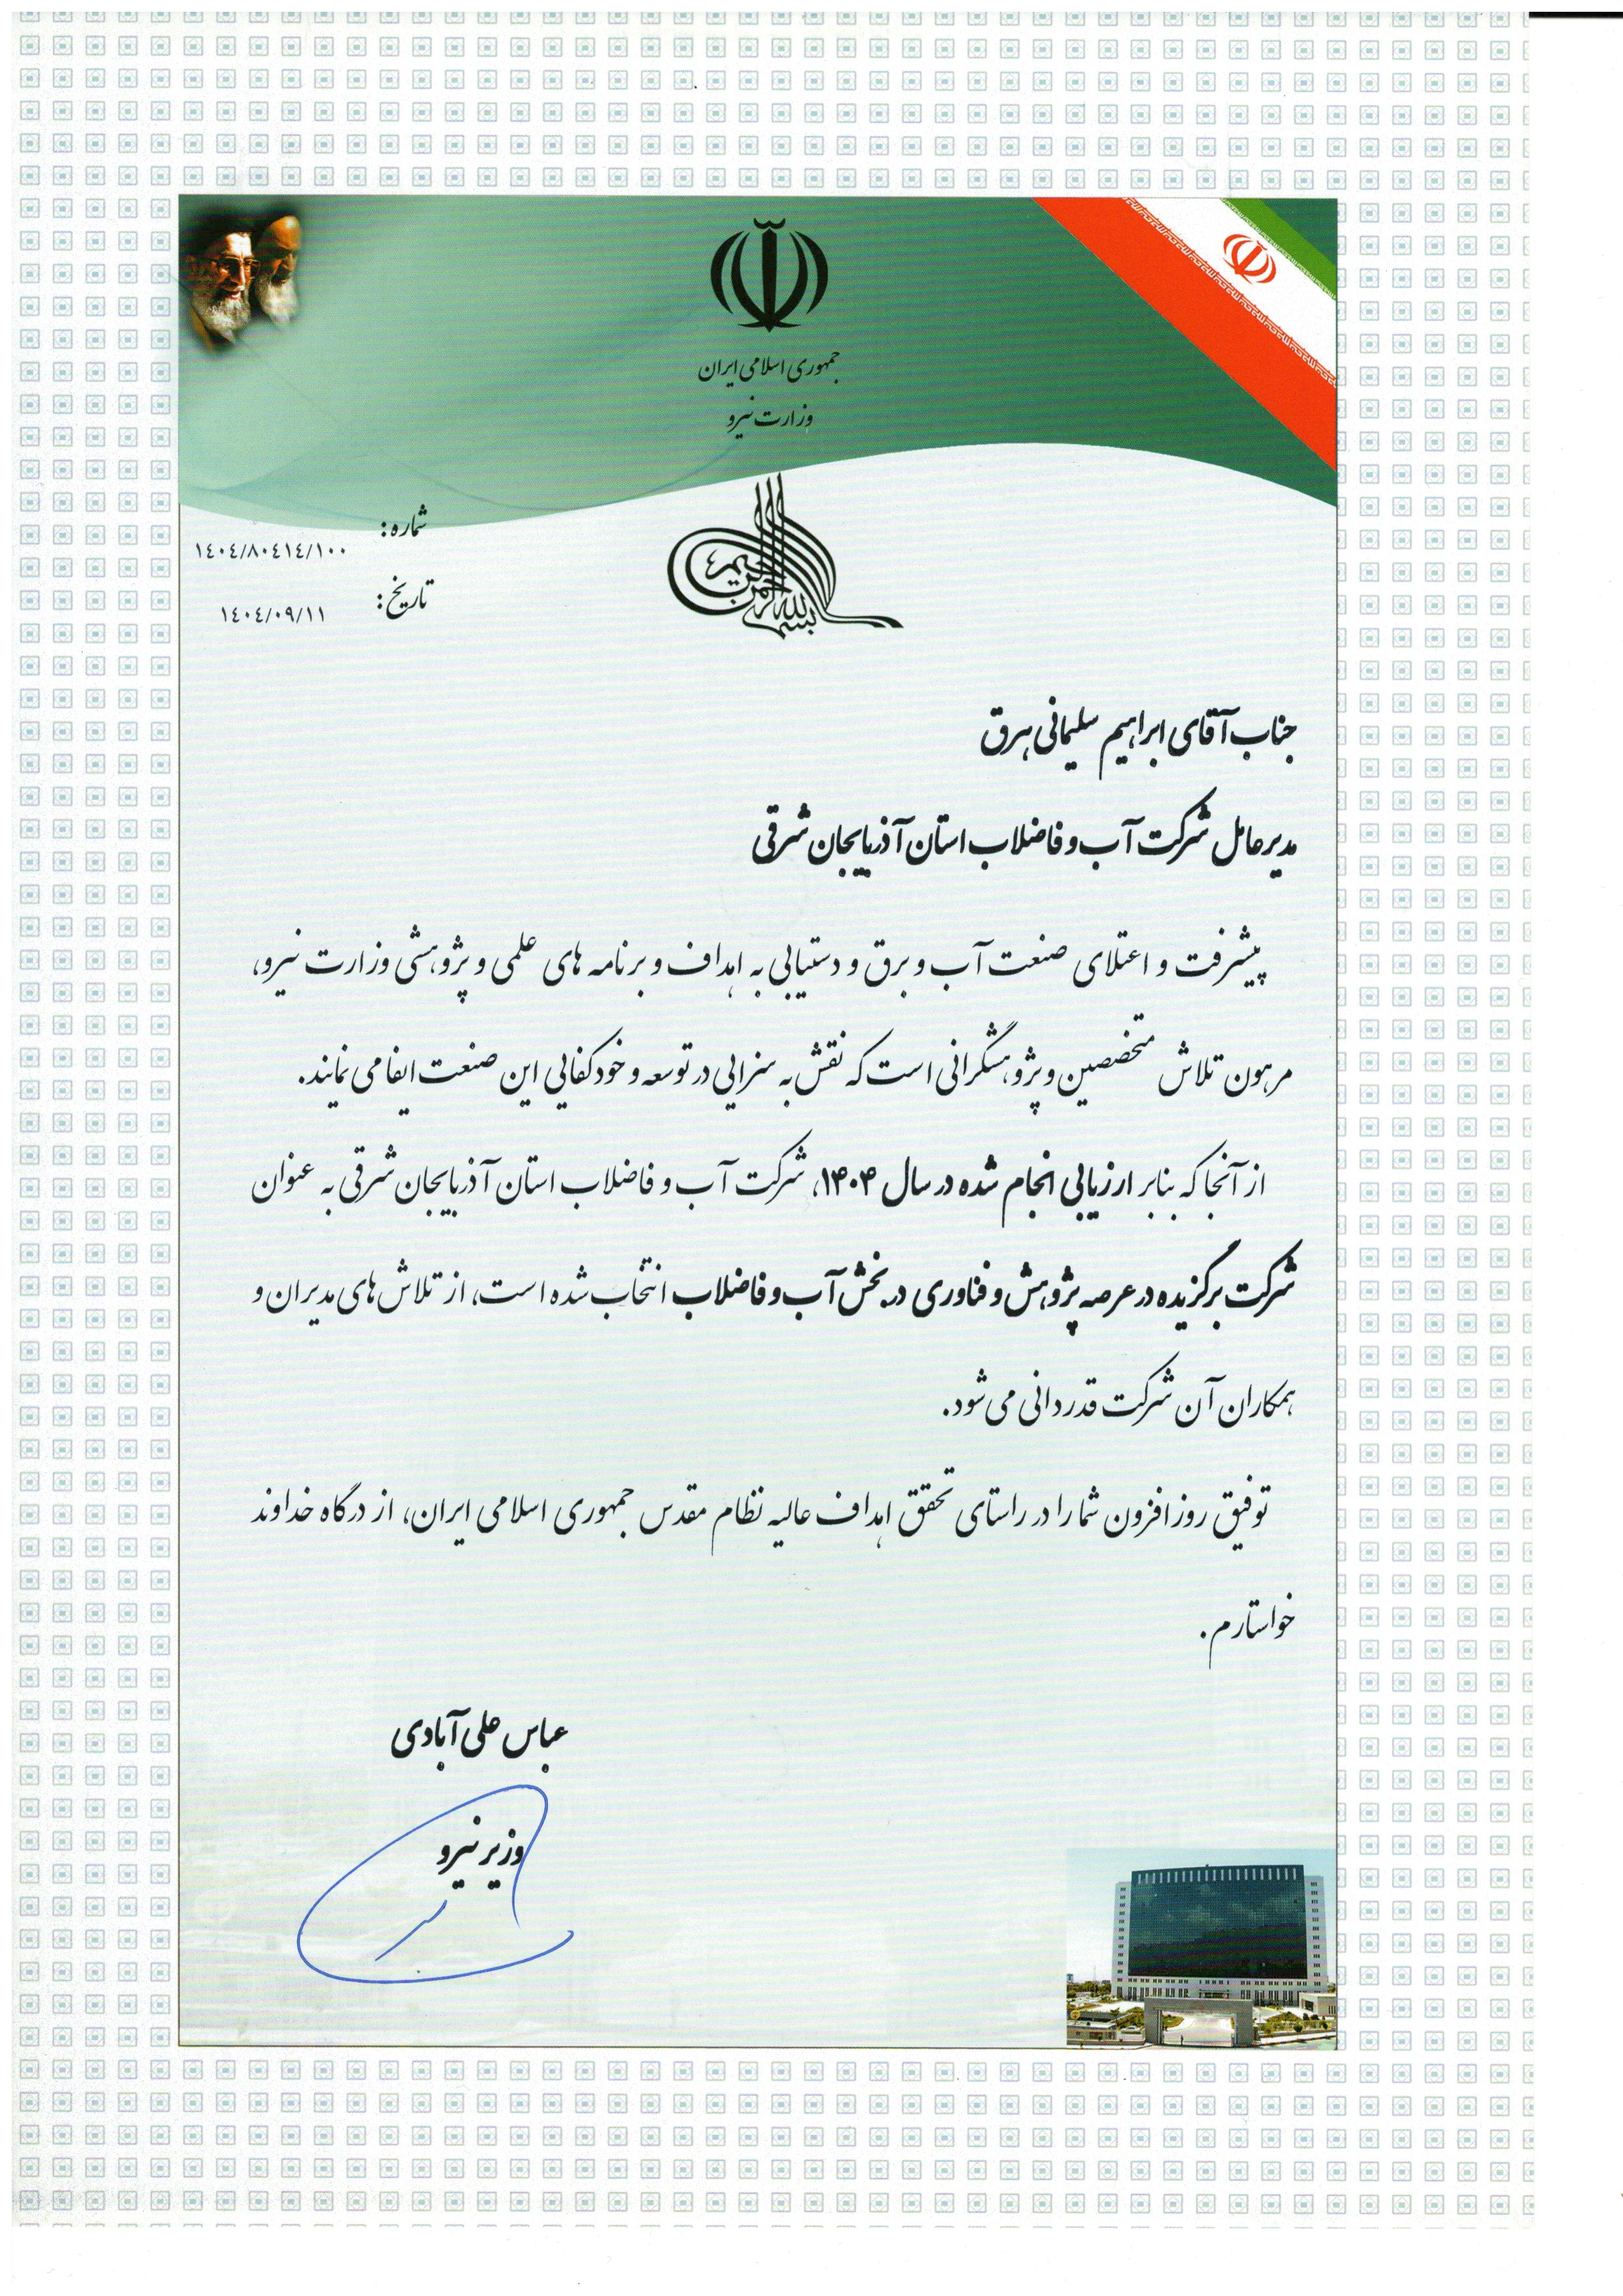 جمهوری اسلامی ایران
وزارت نیرو
بسم الله الرحمن الرحیم
شماره:
۱۴۰۴/۸۰۴۱۴/۱۰۰
تاریخ:
۱۴۰۴/۰۹/۱۱
جناب آقای ابراهیم سلیمانی هرق
مدیرعامل شرکت آب و فاضلاب استان آذربایجان شرقی
پیشرفت و اعتلای صنعت آب و برق و دستیابی به اهداف و برنامه های علمی و پژوهشی وزارت نیرو،
مرهون تلاش متخصصین و پژوهشگرانی است که نقش به سزایی در توسعه و خودکفایی این صنعت ایفا می نمایند.
از آنجا که بنابر ارزیابی انجام شده در سال ۱۴۰۴، شرکت آب و فاضلاب استان آذربایجان شرقی به عنوان
شرکت برگزیده در عرصه پژوهش و فناوری در بخش آب و فاضلاب انتخاب شده است، از تلاش های مدیران و
همکاران آن شرکت قدردانی می شود.
توفیق روزافزون شما را در راستای تحقق اهداف عالیه نظام مقدس جمهوری اسلامی ایران، از درگاه خداوند
خواستارم.
عباس علی آبادی
وزیر نیرو